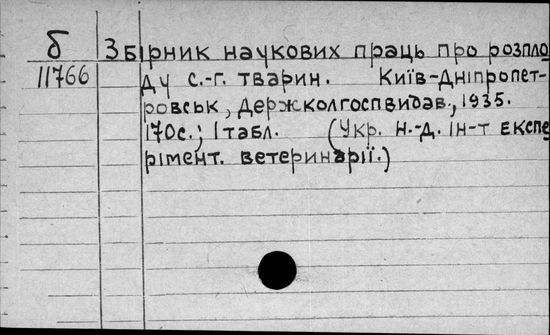 б Збірник наукових праць про розпло
11766 ду с.-г. тварин. Київ-Дніпропет-
ровськ, Держколгоспвидав., 1935.
170с.; 1табл. (Укр. н.-д. ін-т експе
рімент. ветеринарії.)